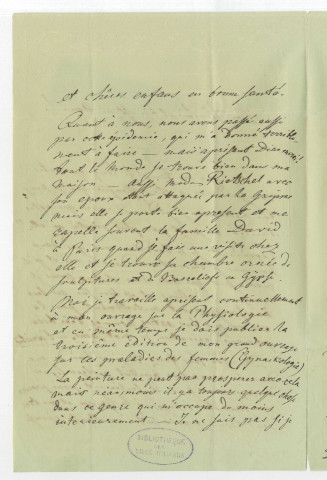 et chères enfans en bonne santé.
Quant à nous, nous avons passé aussi
par cette epidemie, qui m'a donné terrible-
ment à faire — mais apresent Dieu merci!
tout le monde se trouve bien dans ma
maison. — Aussi Madm Rietschel avec
son epoux était attaquée par la Grippe
mais elle se porte bien apresent et me
rapelle souvent la famille David
à Paris quand je fais une visite chez
elle et je trouve sa chambre ornée de
sculptures et de Basreliefs en Gypse.
Moi je travaille apresent continuellement
à mon ouvrage sur la Physiologie
et en même temps je dois publier la
troisième édition de mon grand ouvrage
sur les maladies des femmes (Gynaekologie)
La peinture ne peut pas prosperer avec cela
mais néanmoins il y a toujours quelque chose
dans ce genre qui m'occupe du moins
interieurement — Je ne sais pas si je
BIBLIOTHÈQUE